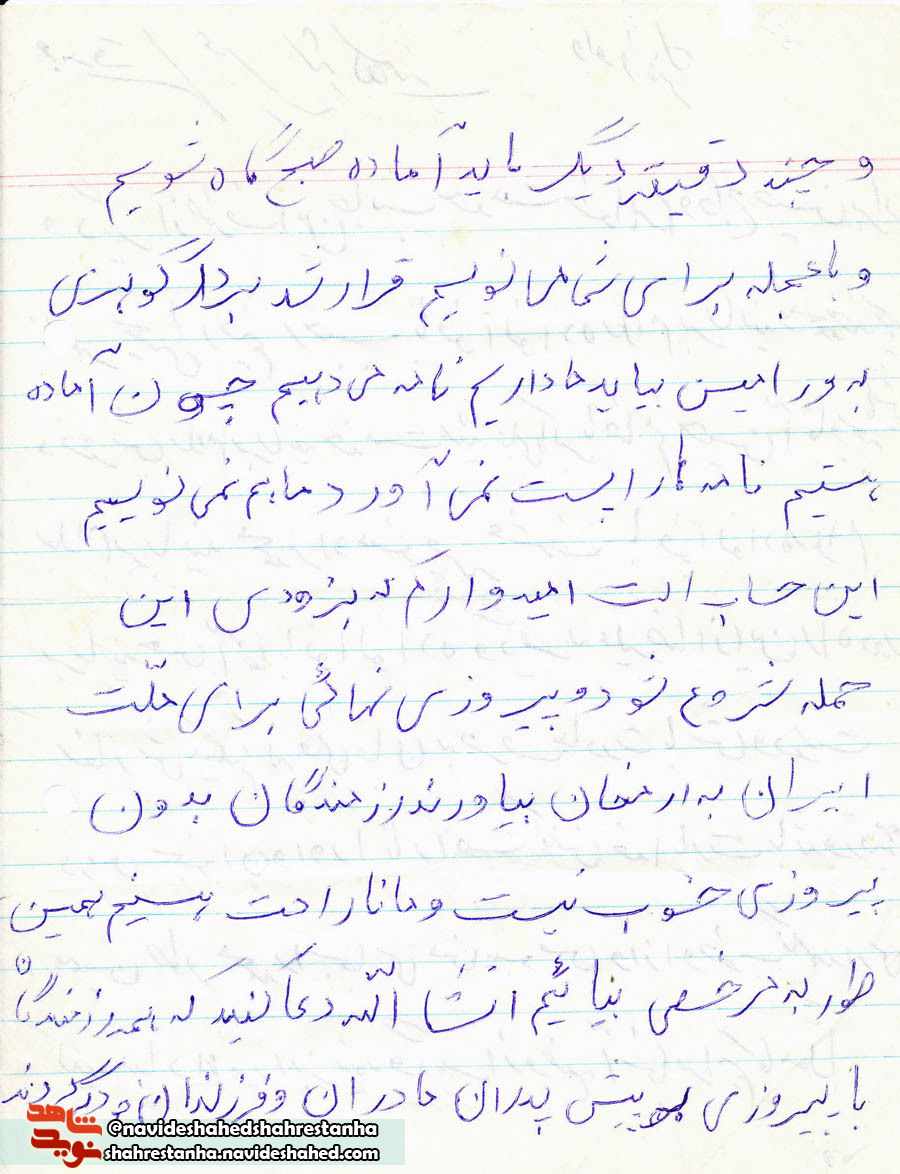 و چند دقیقه دیگر باید آماده صبح گاه شویم
و با عجله برای شما می نویسم قرار شد برادر گوهری
به ورامین بیاید ما داریم نامه می دهیم چون آماده
هستیم نامه ها را پست نمی آورد ما هم نمی نویسیم
این حساب است امیدوارم که بزودی این
حمله شروع شود و پیروزی نهائی برای ملّت
ایران به ارمغان بیاورند رزمندگان بدون
پیروزی خوب نیست و ما ناراحت هستیم همین
طور به مرخصی بیائیم انشا الله دعا کنید که همه رزمندگان
با پیروزی به پیش پدران مادران و فرزندان خود برگردند
شاهد
نوید
@navideshahedshahrestanha
shahrestanha.navideshahed.com